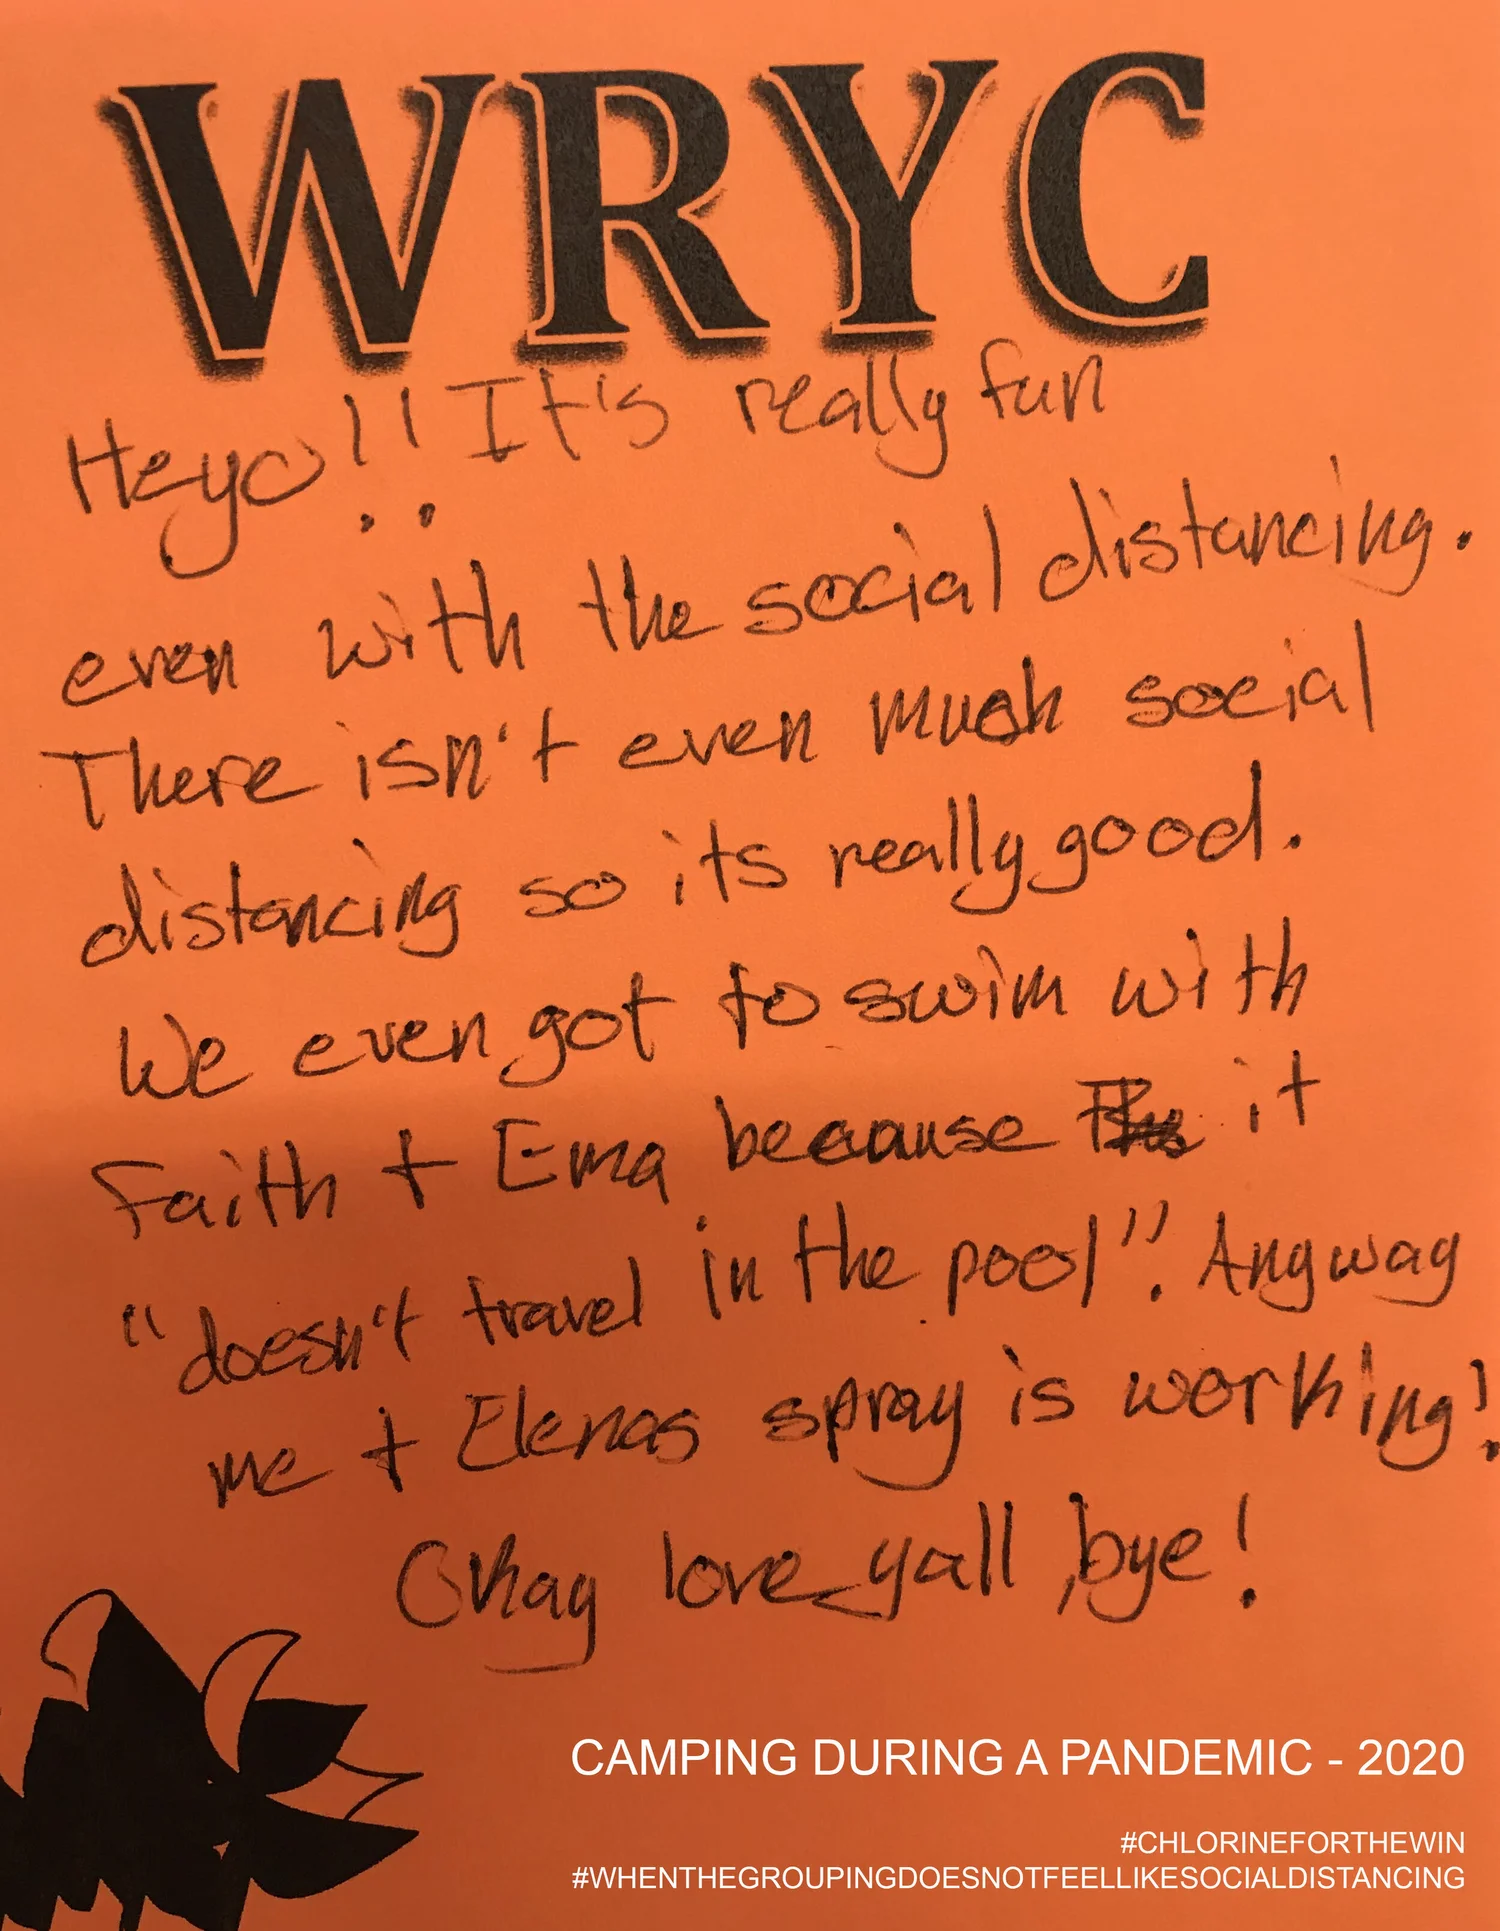 WRYC
Heyo!! It's really fun
even with the social distancing.
There isn't even much social
distancing so its really good.
We even got to swim with
Faith + Ema because it
"doesn't travel in the pool". Anyway
me + Elenas spray is working!
Okay love yall, bye!
CAMPING DURING A PANDEMIC - 2020
#CHLORINEFORTHEWIN
#WHENTHEGROUPINGDOESNOTFEELLIKESOCIALDISTANCING